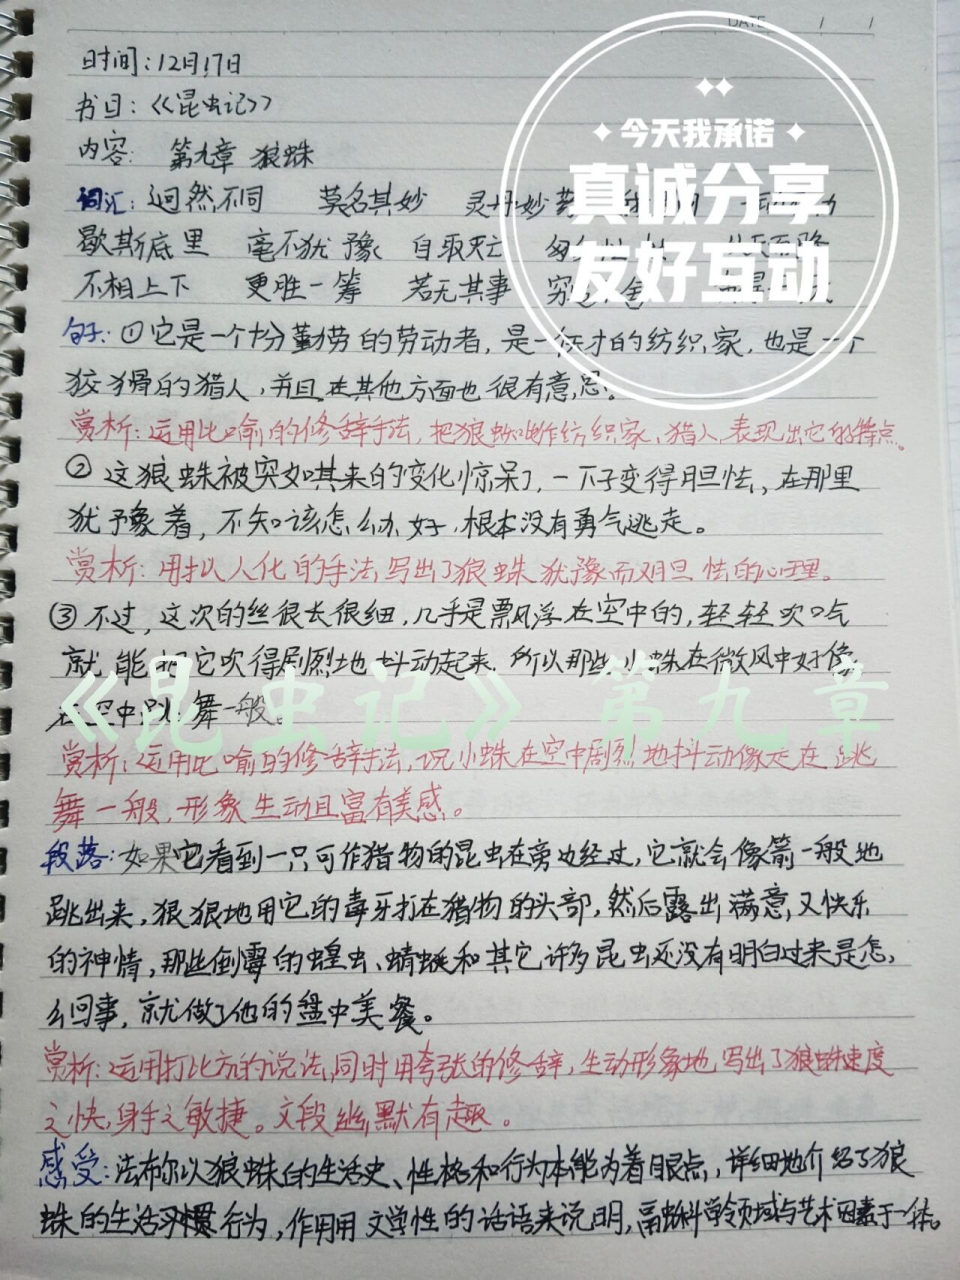 DATE / /
时间:12月17日
书目:《昆虫记》
内容: 第九章 狼蛛
今天我承诺
真诚分享
友好互动
词汇: 迥然不同 莫名其妙 灵丹妙
歇斯底里 毫不犹豫 自取灭亡
不相上下 更胜一筹 若无其事
句子:①它是一个十分勤劳的劳动者,是一个的纺织家,也是一个
狡猾的猎人,并且在其他方面也很有意思。
赏析:运用比喻的修辞手法,把狼蛛喻作纺织家、猎人,表现出它的特点。
②这狼蛛被突如其来的变化惊呆了,一下子变得胆怯,在那里
犹予象着,不知该怎么办好,根本没有勇气逃走。
赏析:用拟人化的手法,写出了狼蛛犹豫而又胆怯的心理。
③不过,这次的丝很长很细,几乎是飘浮在空中的,轻轻吹口气
就能把它吹得剧烈地抖动起来,所以那些小蛛在微风中好像
在空中跳舞一般。
《昆虫记》第九章
赏析:运用比喻的修辞手法,说小蛛在空中剧烈地抖动像是在跳
舞一般,形象生动且富有美感。
段落:如果它看到一只可作猎物的昆虫在旁边经过,它就会像箭一般地
跳出来,狠狠地用它的毒牙打在猎物的头部,然后露出满意又快乐
的神情,那些倒霉的蝗虫、蜻蜓和其它许多昆虫还没有明白过来是怎
么回事,就做了他的盘中美餐。
赏析:运用打比方的说法,同时用夸张的修辞,生动形象地,写出了狼蛛速度
之快,身手之敏捷。文段幽默有趣。
感受:法布尔以狼蛛的生活史、性格和行为本能为着眼点,详细地介绍了狼
蛛的生活习惯行为,作用用文学性的话语来说明,科学领域与艺术因素于一体。